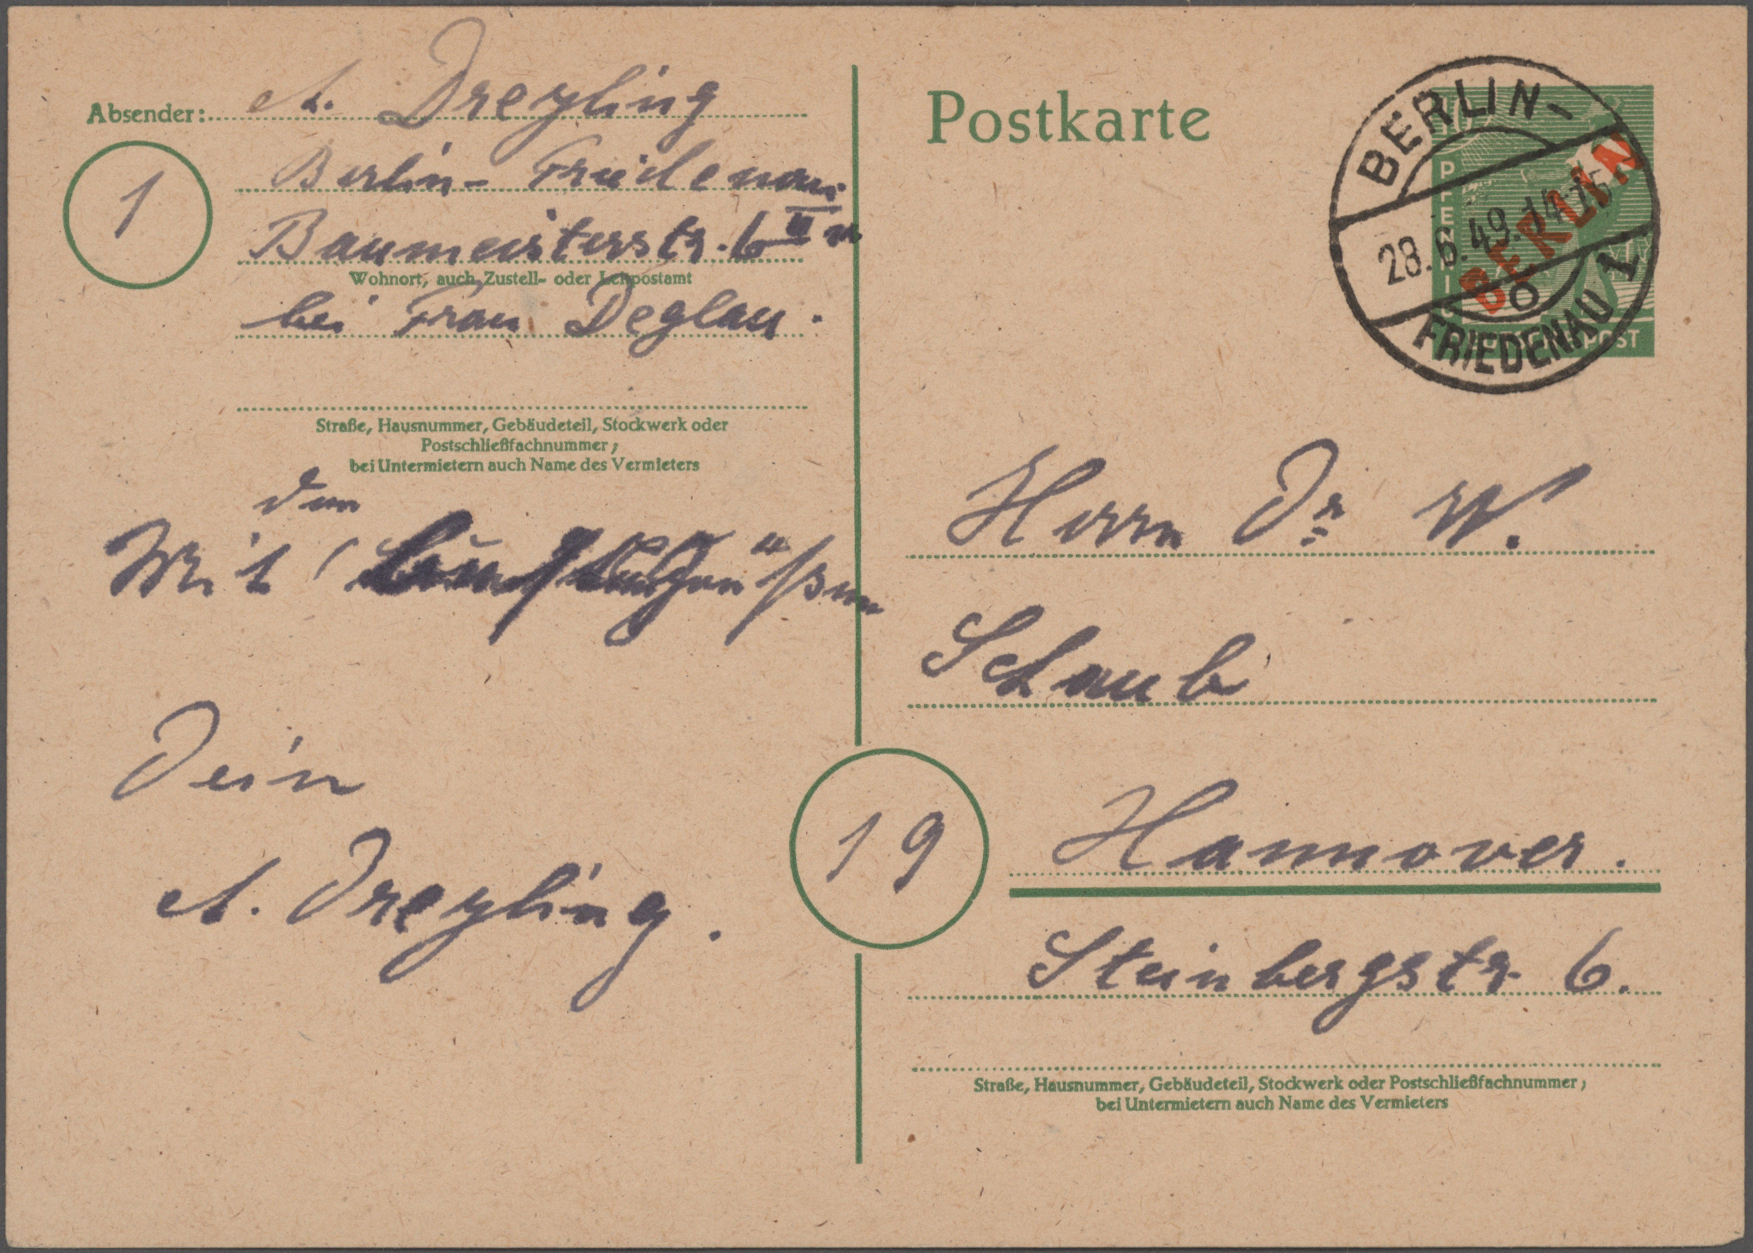 Absender: A. Dreyling
1
Berlin-Friedenau
Baumeisterstr. 6 III
Wohnort, auch Zustell- oder Leitpostamt
bei Frau Deglau.
Straße, Hausnummer, Gebäudeteil, Stockwerk oder
Postschließfachnummer;
bei Untermietern auch Name des Vermieters
Mit
Dein
A. Dreyling.
Postkarte
BERLIN-
28.6.49.14
FRIEDENAU 1
o
BERLIN
PFENNIG
POST
Herrn Dr. W.
Schaub
19
Hannover.
Steinbergstr 6.
Straße, Hausnummer, Gebäudeteil, Stockwerk oder Postschließfachnummer;
bei Untermietern auch Name des Vermieters